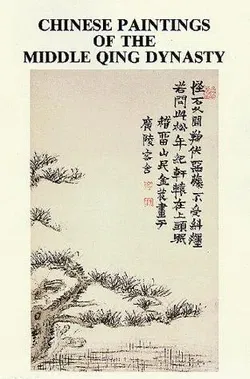 CHINESE PAINTINGS
OF THE
MIDDLE QING DYNASTY
怪石 伏 藤不受斜纏
若問此松年紀軒轅在上頭眠
稽留山民金農畫于
廣陵客舍